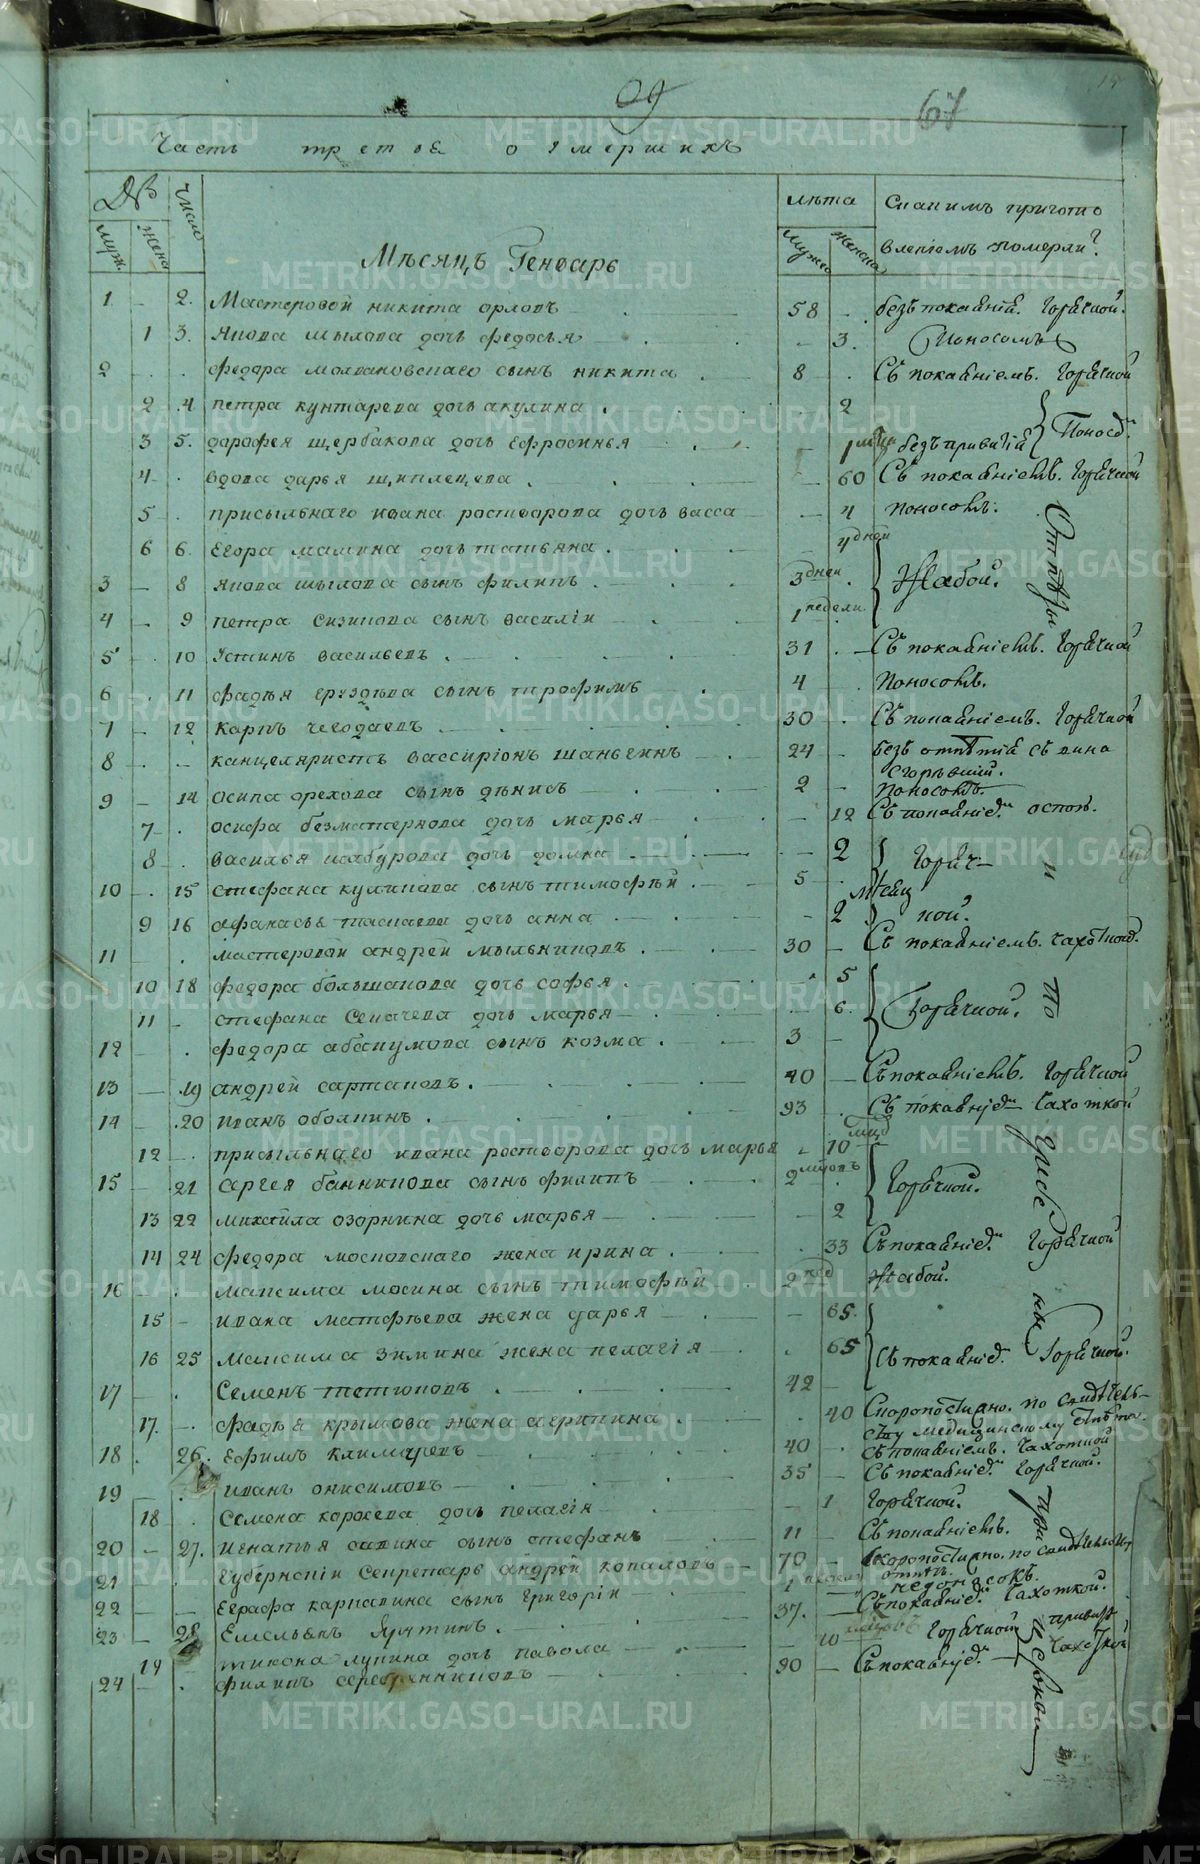 67
Часть третья о умершихъ
№ муж. жена
число
Мѣсяцъ Генварь
лѣта
мужс женска
Снакимъ приготов
влѣніемъ померли?
1 - 2. Мастеровой никита орловъ 58 - безъ покаянія. Горячкой.
1 3. Якова мылова дочь федосья - 3. Поносомъ
2 федора молвановскаго сынъ никита 8 Съ покаяніемъ. Горячкой
2 4 петра кунтарева дочь акулина 2
3 5. дарофея щербакова дочь Ефросинья 1 мца безъ привитія Поносо.
4 вдова дарья щиплецова 60 Съ покаяніемъ. Горячкой
5 присыльнаго ивана растворова дочь васса 4 поносомъ.
6 6. Егора мамина дочь татьяна 4 дней
3 - 8 якова шылова сынъ филипъ 3 дней Жабой.
4 - 9 петра сизикова сынъ василій 1 недели
5 - 10 Устинъ васильевъ 31 Съ покаяніемъ. Горячкой
6 11 фадѣя груздѣва сынъ трофимъ 4 Поносомъ.
7 - 12 Карпъ чегодаевъ 30 Съ покаяніемъ. Горячкой
8 - - канцеляристъ вассиріонъ шаньгинъ 24 безъ отпѣтія съ вина
сгорѣвшій.
9 - 14 осипа орехова сынъ дѣнисъ 2 Поносомъ.
7 осифа безматернова дочь марья 12 Съ покаяніе. оспой.
8 василья шабурова дочь домна 2 Горяч-
10 15 стефана куликова сынъ тимофѣй 5 мѣсяц
9 16 афанасья таскаева дочь анна 2 кой.
11 мастеровой андрей мыльниковъ 30 Съ покаяніемъ. чахоткой.
10 18 федора большакова дочь софья 5
11 стефана Секачева дочь марья 6. Горячкой.
12 федора абакумова сынъ козма 3
13 19 андрей сартаковъ 40 Съ покаяніемъ. Горячкой
14 20 иванъ оболкинъ 93 Съ покаяніе Чахоткой
12 присыльнаго ивана растворова дочь марья 10 мцд
15 21 Сергея банникова сынъ филипъ 2 мцовъ Горячкой.
13 22 михаила озорнина дочь марья 2
14 24 федора московскаго жена ирина 33 Съ покаяніе. Горячкой
16 максима мосина сынъ тимофѣй 2 нед Жабой.
15 - ивака матфѣева жена дарья 65.
16 25 максима зимина жена пелагія 65 Съ покаяніе. Горячкой.
17 Семенъ тетюковъ 42
17 фадѣя крымова жена агрипина 40 Скоропостижно. по свидѣтель-
ству медицинскому отпѣта.
18 26. Ефимъ климаревъ 40 Съ покаяніемъ. Чахоткой
19 иванъ онисимовъ 35 Съ покаяніе. Горячкой.
18 Семена корокева дочь пелагія 1 Горячкой.
20 - 27. игнатья савина сынъ стефанъ 11 Съ покаяніемъ.
21 Губернскій Секретарь андрей копаловъ 70 Скоропостижно. по свидѣтельст.
отпѣтъ.
22 Евграфа карпавина сынъ григорій 1 неделы недоносокъ.
23 28 Емельянъ Лунтинъ 37. Съ покаяніе. Чахоткой.
19 тихона лукина дочь павола 10 мцовъ Горячкой
24 филипъ серебрянниковъ 90 Съ покаяніе. Чахоткой
Отпѣты
и
по
гребе
ны
при
искомъ